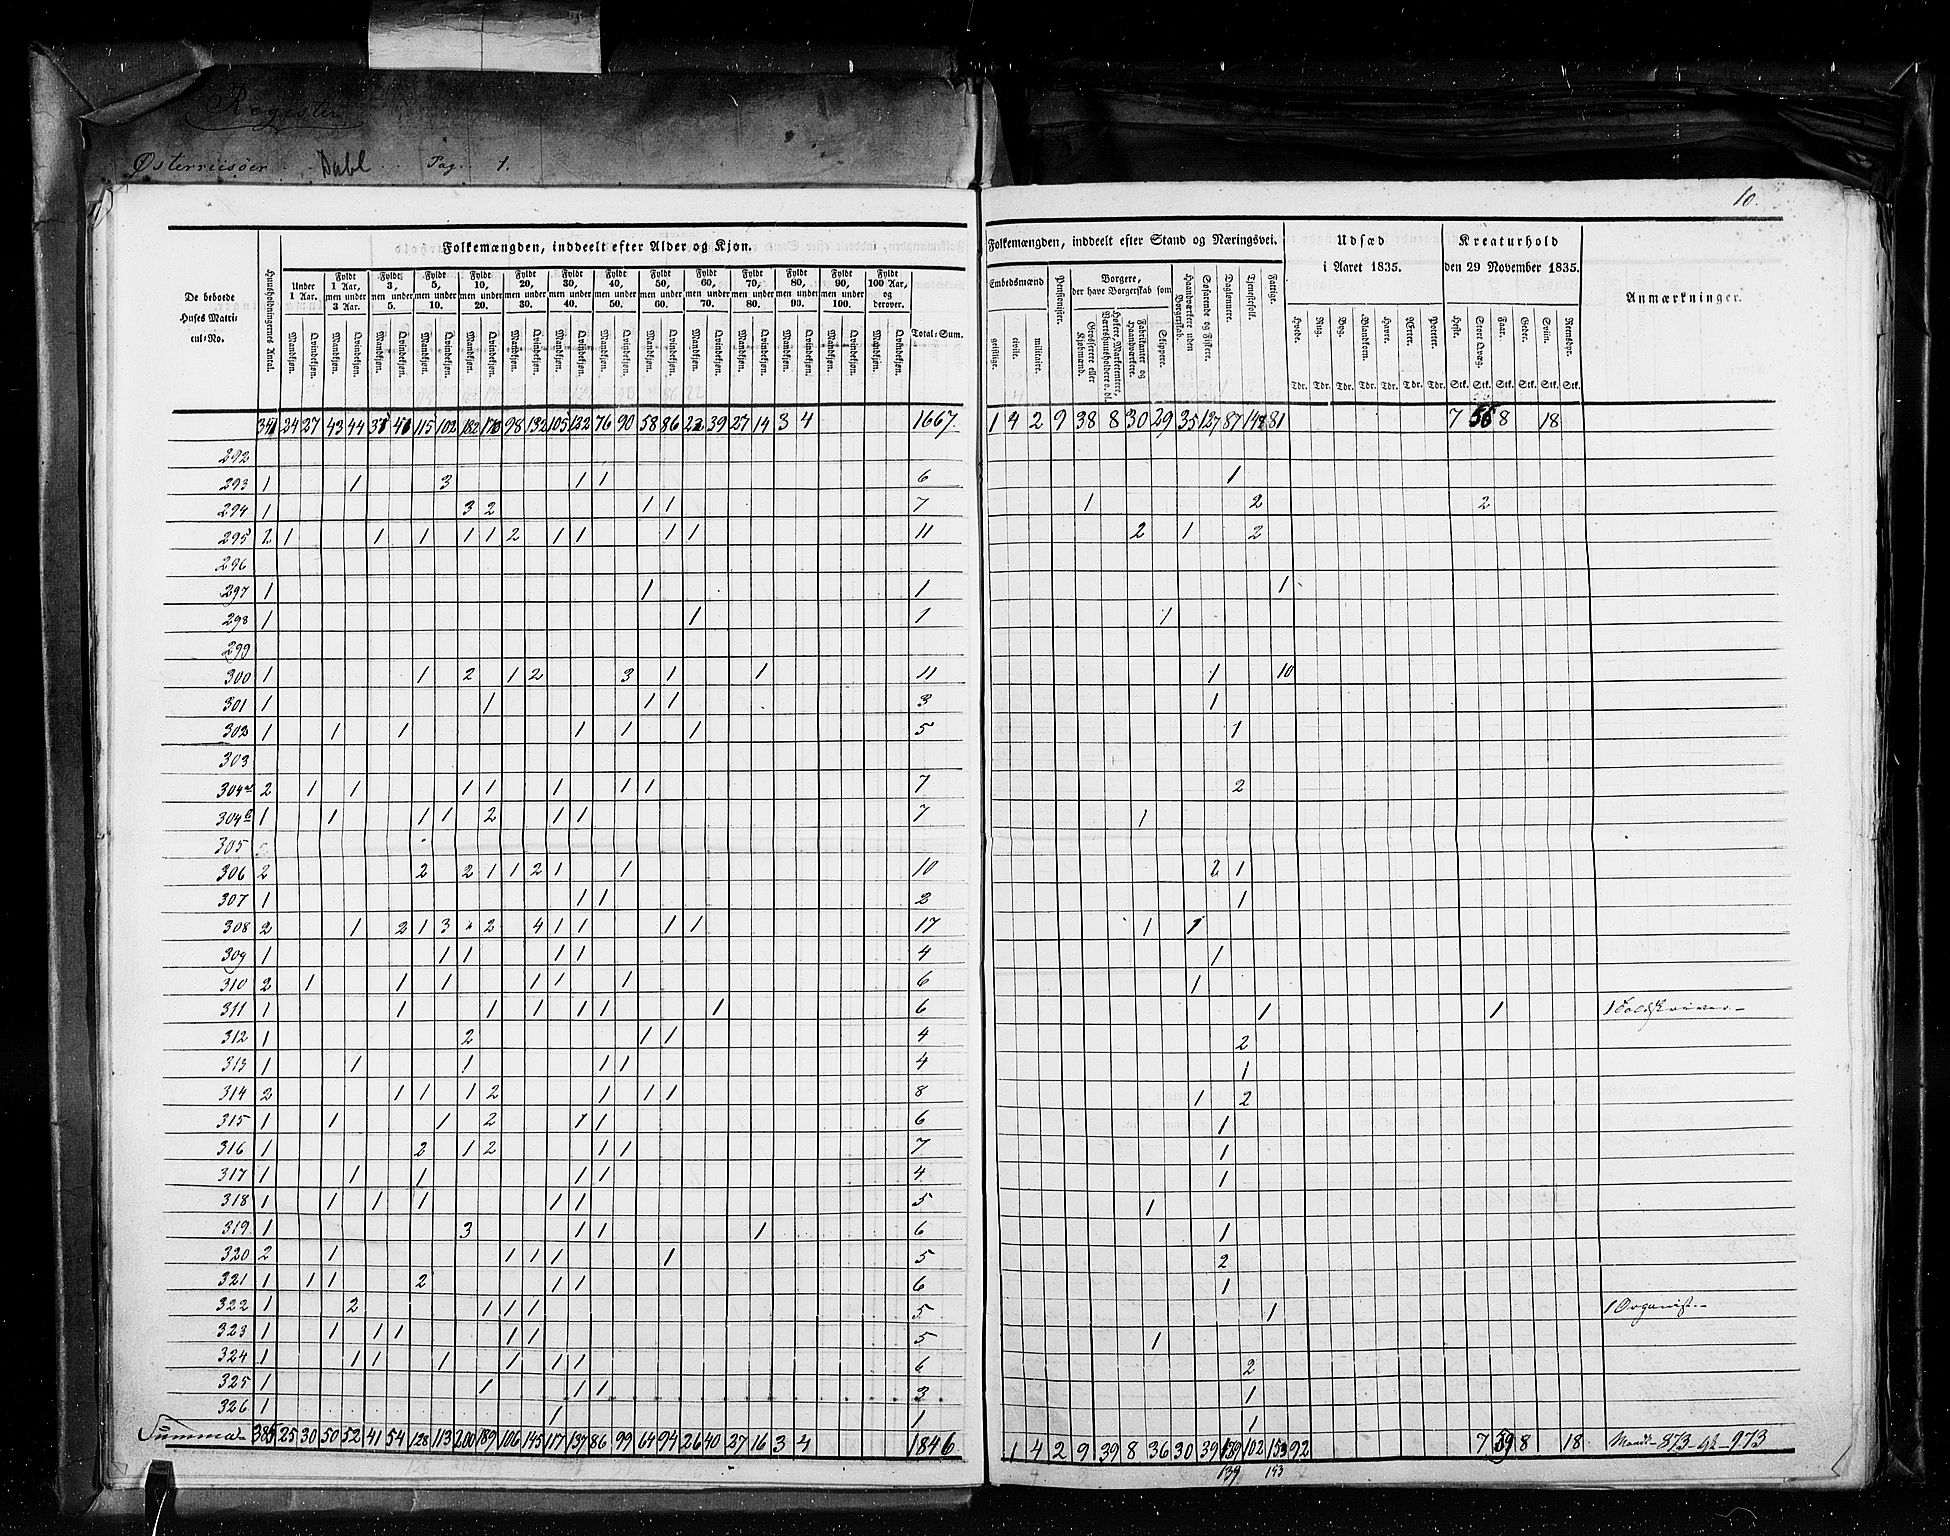 Register
Østerriisøer . . Dahl . . Pag. 1.
10.
Folkemængden, inddeelt efter Alder og Kjøn.
De beboede Huses Matricul-No.
Huusholdningernes Antal.
Under 1 Aar.
Fyldt 1 Aar, men under 3 Aar.
Fyldt 3, men under 5.
Fyldt 5, men under 10.
Fyldt 10, men under 20.
Fyldt 20, men under 30.
Fyldt 30, men under 40.
Fyldt 40, men under 50.
Fyldt 50, men under 60.
Fyldt 60, men under 70.
Fyldt 70, men under 80.
Fyldt 80, men under 90.
Fyldt 90, men under 100.
Fyldt 100 Aar, og derover.
Mandkjøn. Qvindekjøn. Mandkjøn. Qvindekjøn. Mandkjøn. Qvindekjøn. Mandkjøn. Qvindekjøn. Mandkjøn. Qvindekjøn. Mandkjøn. Qvindekjøn. Mandkjøn. Qvindekjøn. Mandkjøn. Qvindekjøn. Mandkjøn. Qvindekjøn. Mandkjøn. Qvindekjøn. Mandkjøn. Qvindekjøn. Mandkjøn. Qvindekjøn. Mandkjøn. Qvindekjøn. Mandkjøn. Qvindekjøn.
Total-Sum.
Folkemængden, inddeelt efter Stand og Næringsvei.
Embedsmænd
geistlige. civile. militaire.
Pensionister.
Borgere, der have Borgerskab som
Grosserere eller Kjøbmænd.
Høkere, Marketentere, Værtshuusholdere o. dl.
Fabrikanter og Haandværkere.
Skippere.
Haandværkere uden Borgerskab.
Søfarende og Fiskere.
Daglønnere.
Tjenestefolk.
Fattige.
Udsæd i Aaret 1835.
Hvede. Rug. Byg. Blandkorn. Havre. Erter. Poteter.
Tdr. Tdr. Tdr. Tdr. Tdr. Tdr. Tdr.
Kreaturhold den 29 November 1835.
Heste. Stort Qvæg. Faar. Geder. Sviin. Reensdyr.
Stk. Stk. Stk. Stk. Stk. Stk.
Anmærkninger.
341 24 27 43 44 37 115 102 182 170 98 132 105 122 76 90 58 86 22 39 27 14 3 4 1667. 1 4 2 9 38 8 30 29 35 127 87 81 7 56 8 18
292
293 1 1 3 1 1 6 1
294 1 3 2 1 1 7 1 2 2
295 2 1 1 1 1 1 2 1 1 1 1 11 2 1 2
296
297 1 1 1 1
298 1 1 1 1
299
300 1 1 2 1 2 3 1 1 11 1 10
301 1 1 1 1 3 1
302 1 1 1 1 1 1 5 1
303
304a 2 1 1 1 1 1 1 1 7 2
304b 1 1 1 1 2 1 1 7 1
305
306 2 2 2 1 1 2 1 1 10 2 1
307 1 1 1 2 1
308 2 1 2 1 3 2 4 1 1 1 1 17 1 1
309 1 1 1 1 1 4 1
310 2 1 1 1 1 1 1 6 1
311 1 1 1 1 1 1 1 6 1 1 1 Toldskriver
312 1 2 1 1 4 2
313 1 1 1 1 1 4 1
314 2 1 1 1 2 1 1 1 8 1 2
315 1 1 1 2 1 1 6 1
316 1 2 1 2 1 1 7 1
317 1 1 1 1 1 4 1
318 1 1 1 1 1 1 5 1
319 1 3 1 1 1 6 1
320 2 1 1 1 1 1 5 2
321 1 1 1 2 1 1 6 1
322 1 2 1 1 1 5 1 1 Organist
323 1 1 1 1 1 1 5 1
324 1 1 1 1 1 1 1 6 2
325 1 1 1 1 3 1
326 1 1 1 1
Summa 385 25 30 50 52 41 54 128 113 200 189 106 145 117 137 86 99 64 94 26 40 27 16 3 4 1846 1 4 2 9 39 8 36 30 39 139 102 153 92 7 59 8 18 873 973
139 153